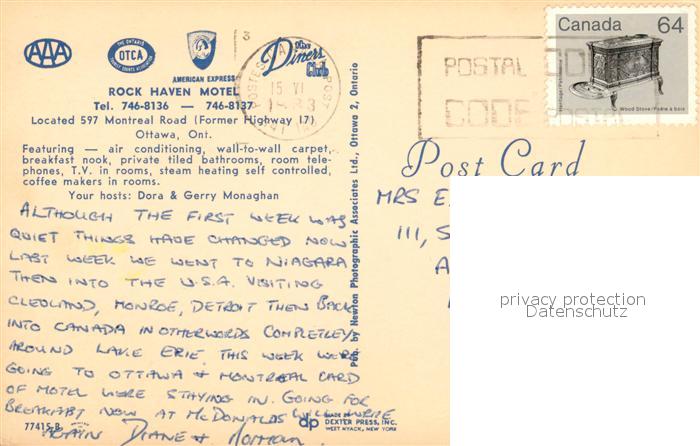 AAA
THE ONTARIO
OTCA
AMERICAN EXPRESS
The Diners Club
ROCK HAVEN MOTEL
Tel. 746-8136 — 746-8137
Located 597 Montreal Road (Former Highway 17)
Ottawa, Ont.
Featuring — air conditioning, wall-to-wall carpet,
breakfast nook, private tiled bathrooms, room tele-
phones, T.V. in rooms, steam heating self controlled,
coffee makers in rooms.
Your hosts: Dora & Gerry Monaghan
ALTHOUGH THE FIRST WEEK WAS
QUIET THINGS HAVE CHANGED NOW
LAST WEEK WE WENT TO NIAGARA
THEN INTO THE U.S.A. VISITING
CLEOLAND, MONROE, DETROIT THEN BACK
INTO CANADA IN OTHERWORDS COMPLETLEY
AROUND LAKE ERIE. THIS WEEK WERE
GOING TO OTTAWA + MONTREAL CARD
OF MOTEL WERE STAYING IN. GOING FOR
BREAKFAST NOW AT McDONALDS WILL WRITE
AGAIN DIANE + NORMAN
77415-B
dp
MADE BY
DEXTER PRESS, INC.
WEST NYACK, NEW YORK
Pub. by Newton Photographic Associates Ltd., Ottawa 2, Ontario
15 VI
1983
POSTAL CODE
CODE POSTAL
Canada 64
Wood Stove / Poêle à bois
Post Card
MRS E
111, S
A
privacy protection
Datenschutz